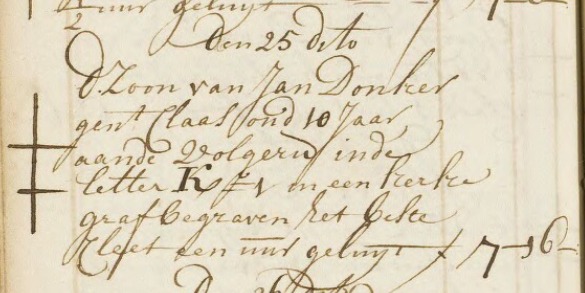 ½ uur geluyt
Den 25 dito
d. Zoon van Jan Donker
gent Claas oud 10 Jaar
aande Volgerw inde
letter K # 1 in een kerke
graf begraven het beste
Cleet een uur geluyt f 7-16-